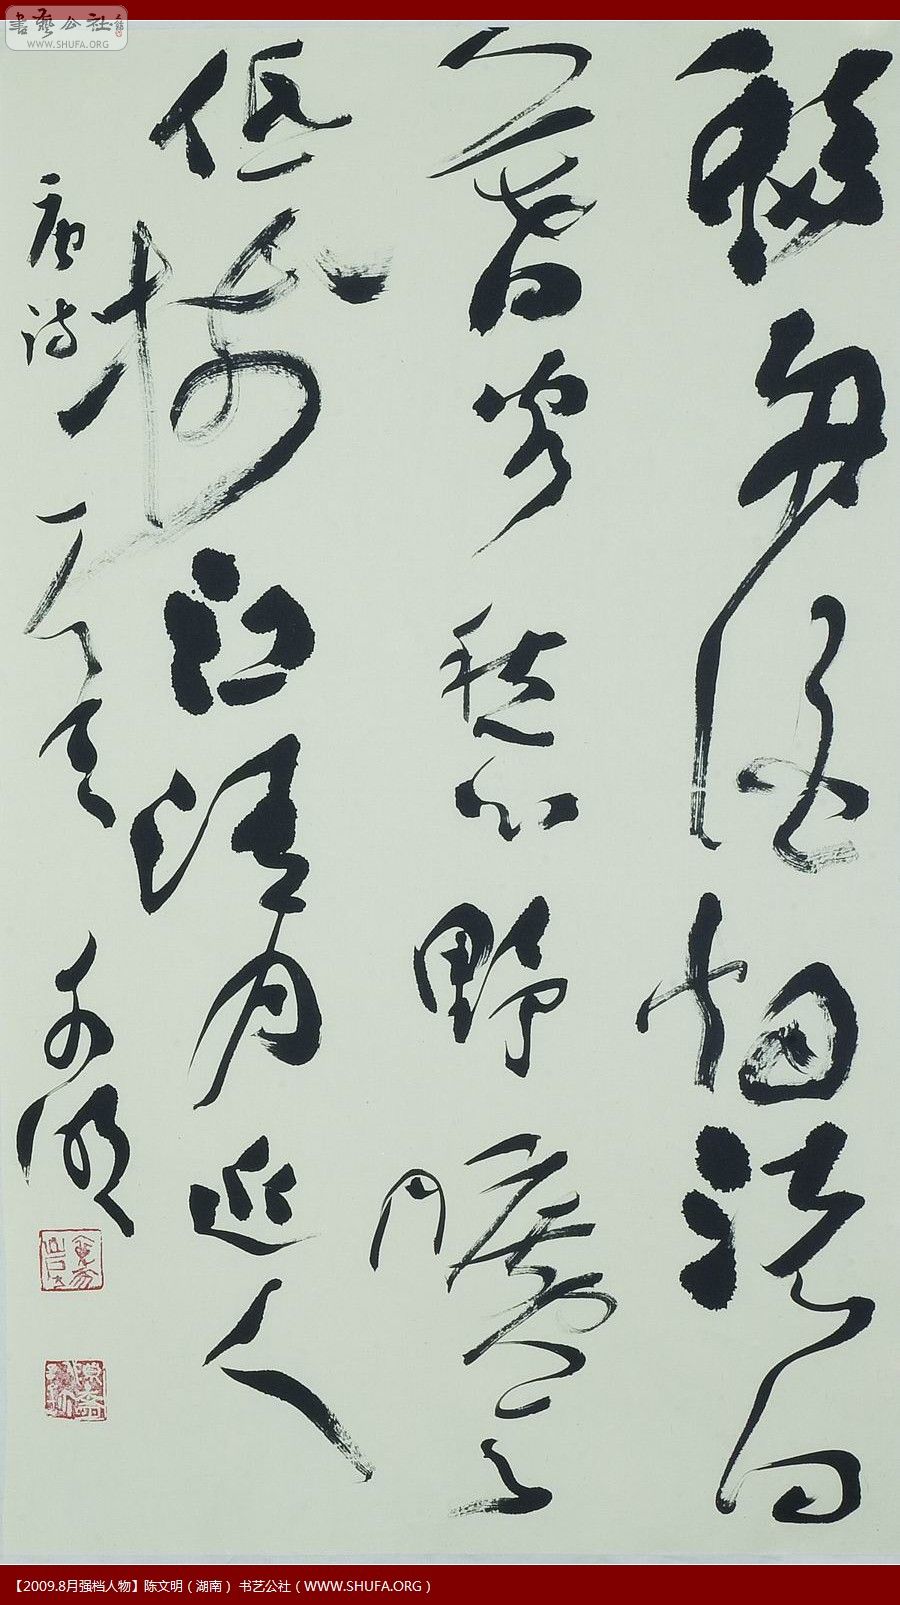 書藝公社
WWW.SHUFA.ORG
移舟泊烟渚日
暮客愁野旷天
低树江清月近人
唐诗
文明
【2009.8月强档人物】陈文明（湖南） 书艺公社（WWW.SHUFA.ORG）